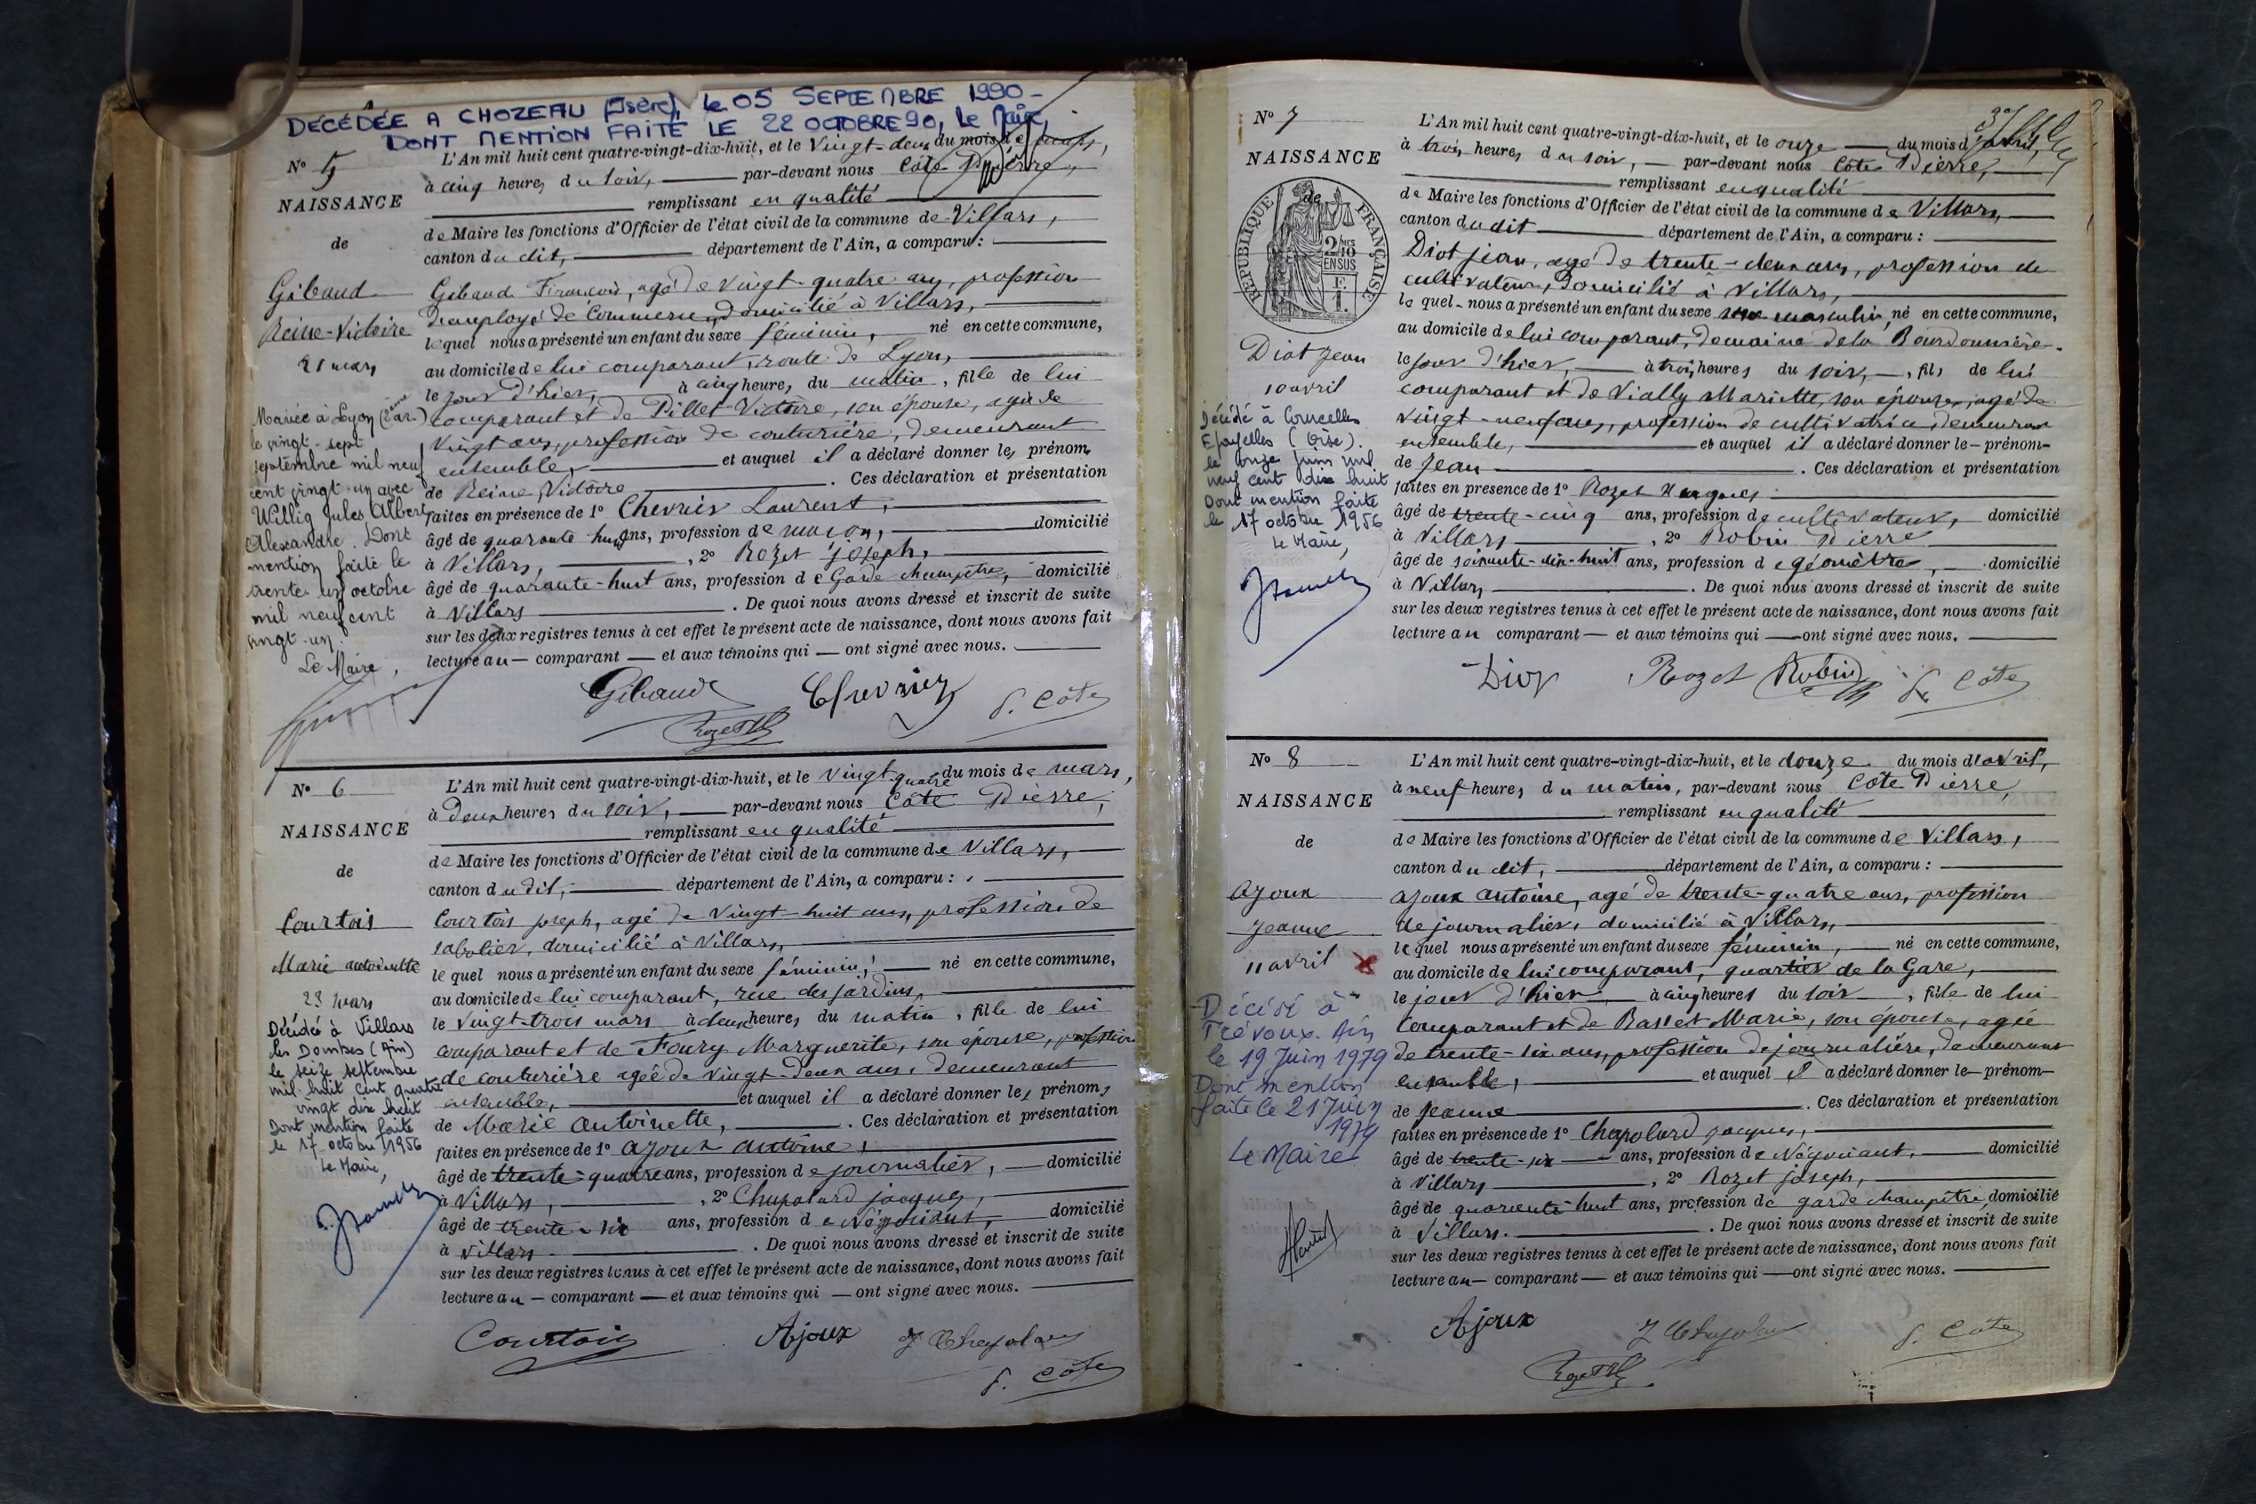 DÉCÉDÉE A CHOZEAU (Isère), le 05 SEPTEMBRE 1990 -
DONT MENTION FAITE LE 22 OCTOBRE 90, Le Maire,
N° 5
NAISSANCE
de
Gibaud
Reine-Victoire
21 mars
Mariée à Lyon (2ème ar.)
le vingt-sept
septembre mil neuf
cent vingt-un avec
Willig Jules Albert
Alexandre. Dont
mention faite le
trente un octobre
mil neuf cent
vingt-un.
Le Maire,
L'An mil huit cent quatre-vingt-dix-huit, et le vingt-deux du mois de mars,
à cinq heures du soir, par-devant nous Côte Pierre,
remplissant en qualité
de Maire les fonctions d'Officier de l'état civil de la commune de Villars,
canton du dit, département de l'Ain, a comparu :
Gibaud François, agé de vingt-quatre ans, profession
d'employé de Commerce, domicilié à Villars,
lequel nous a présenté un enfant du sexe féminin, né en cette commune,
au domicile de lui comparant, route de Lyon,
le jour d'hier, à cinq heures du matin, fille de lui
comparant et de Pillet Victoire, son épouse, agée de
vingt ans, profession de couturière, demeurant
ensemble, et auquel il a déclaré donner les prénoms
de Reine Victoire . Ces déclaration et présentation
faites en présence de 1° Chevrier Laurent,
âgé de quarante-huit ans, profession de maçon, domicilié
à Villars, , 2° Rozet joseph,
âgé de quarante-huit ans, profession de Garde champêtre, domicilié
à Villars . De quoi nous avons dressé et inscrit de suite
sur les deux registres tenus à cet effet le présent acte de naissance, dont nous avons fait
lecture au comparant et aux témoins qui ont signé avec nous.
Gibaud Chevrier P. Côte
Rozet
N° 6
NAISSANCE
de
Courtois
Marie antoinette
23 mars
Décédée à Villars
les Dombes (Ain)
le seize septembre
mil huit cent quatre
vingt dix huit
Dont mention faite
le 17 octobre 1956
Le Maire,
L'An mil huit cent quatre-vingt-dix-huit, et le vingt-quatre du mois de mars,
à deux heures du soir, par-devant nous Côte Pierre,
remplissant en qualité
de Maire les fonctions d'Officier de l'état civil de la commune de Villars,
canton du dit, département de l'Ain, a comparu :
Courtois joseph, agé de vingt-huit ans, profession de
sabotier, domicilié à Villars,
lequel nous a présenté un enfant du sexe féminin, né en cette commune,
au domicile de lui comparant, rue des jardins,
le vingt-trois mars à deux heures du matin, fille de lui
comparant et de Foury Marguerite, son épouse, profession
de couturière agée de vingt-deux ans, demeurant
ensemble, et auquel il a déclaré donner les prénoms
de Marie antoinette, . Ces déclaration et présentation
faites en présence de 1° ajoux antoine,
âgé de trente-quatre ans, profession de journalier, domicilié
à Villars, , 2° Chapolard jacques,
âgé de trente-six ans, profession de Négociant, domicilié
à Villars . De quoi nous avons dressé et inscrit de suite
sur les deux registres tenus à cet effet le présent acte de naissance, dont nous avons fait
lecture au comparant et aux témoins qui ont signé avec nous.
Courtois Ajoux J Chapolard
P. Côte
N° 7
NAISSANCE
de
RÉPUBLIQUE FRANÇAISE
2/10
EN SUS
Diot Jean
10 avril
Décédé à Courcelles
Epayelles (Oise).
le onze juin mil
neuf cent dix huit
Dont mention faite
le 17 octobre 1956
Le Maire,
L'An mil huit cent quatre-vingt-dix-huit, et le onze du mois d'avril,
à trois heures du soir, par-devant nous Côte Pierre,
remplissant en qualité
de Maire les fonctions d'Officier de l'état civil de la commune de Villars,
canton du dit département de l'Ain, a comparu :
Diot jean, agé de trente-deux ans, profession de
cultivateur, domicilié à Villars,
lequel nous a présenté un enfant du sexe masculin, né en cette commune,
au domicile de lui comparant, domaine de la Bourdonnière,
le jour d'hier, à trois heures du soir, fils de lui
comparant et de Vially Mariette, son épouse, agée de
vingt-neuf ans, profession de cultivatrice, demeurant
ensemble, et auquel il a déclaré donner le prénom
de Jean . Ces déclaration et présentation
faites en présence de 1° Rozet Hugues
âgé de trente-cinq ans, profession de cultivateur, domicilié
à Villars , 2° Robin Pierre
âgé de soixante-dix-huit ans, profession de géomètre, domicilié
à Villars . De quoi nous avons dressé et inscrit de suite
sur les deux registres tenus à cet effet le présent acte de naissance, dont nous avons fait
lecture au comparant et aux témoins qui ont signé avec nous.
Diot Rozet Robin P. Côte
N° 8
NAISSANCE
de
Ajoux
Jeanne
11 avril
Décédé à
Trévoux. Ain
le 19 Juin 1979
Dont mention
faite le 21 Juin
1979
Le Maire
L'An mil huit cent quatre-vingt-dix-huit, et le douze du mois d'avril,
à neuf heures du matin, par-devant nous Côte Pierre,
remplissant en qualité
de Maire les fonctions d'Officier de l'état civil de la commune de Villars,
canton du dit, département de l'Ain, a comparu :
ajoux antoine, agé de trente-quatre ans, profession
de journalier, domicilié à Villars,
lequel nous a présenté un enfant du sexe féminin, né en cette commune,
au domicile de lui comparant, quartier de la Gare,
le jour d'hier à cinq heures du soir , fille de lui
comparant et de Basset Marie, son épouse, agée
de trente-six ans, profession de journalière, demeurant
ensemble, et auquel il a déclaré donner le prénom
de jeanne . Ces déclaration et présentation
faites en présence de 1° Chapolard jacques,
âgé de trente-six ans, profession de Négociant, domicilié
à Villars , 2° Rozet joseph,
âgé de quarante-huit ans, profession de garde champêtre, domicilié
à Villars. . De quoi nous avons dressé et inscrit de suite
sur les deux registres tenus à cet effet le présent acte de naissance, dont nous avons fait
lecture au comparant et aux témoins qui ont signé avec nous.
Ajoux J Chapolard P. Côte
Rozet